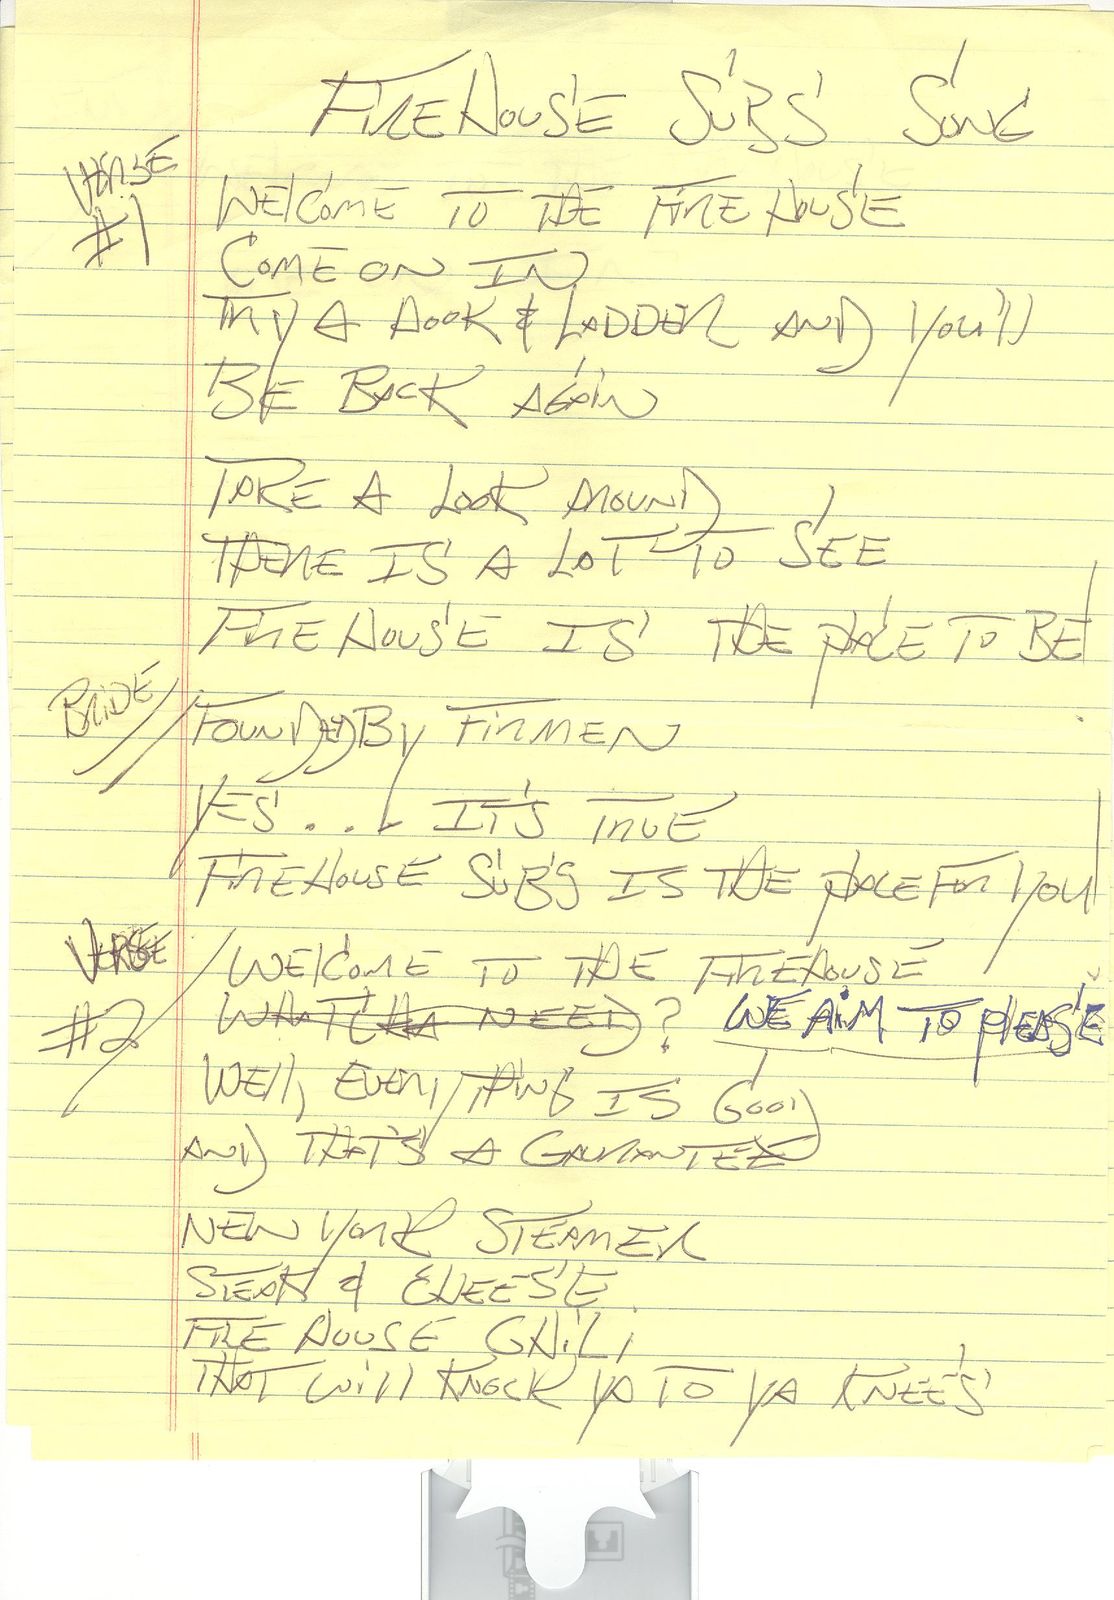 FIREHOUSE SUBS SONG
VERSE #1
WELCOME TO THE FIREHOUSE
COME ON IN
TRY A HOOK & LADDER AND YOU'll
BE BACK AGAIN
TAKE A LOOK AROUND
THERE IS A LOT TO SEE
FIREHOUSE IS THE PLACE TO BE!
BRIDE
FOUNDED BY FIRMEN
YES... IT'S TRUE
FIREHOUSE SUBS IS THE PLACE FOR YOU!
VERSE #2
WELCOME TO THE FIREHOUSE
WHATCHA NEED? WE AIM TO PLEASE
WELL, EVERYTHING IS GOOD
AND THAT'S A GAURANTEE
NEW YORK STEAMER
STEAK & CHEESE
FIREHOUSE CHILI
THAT WILL KNOCK YA TO YA KNEES